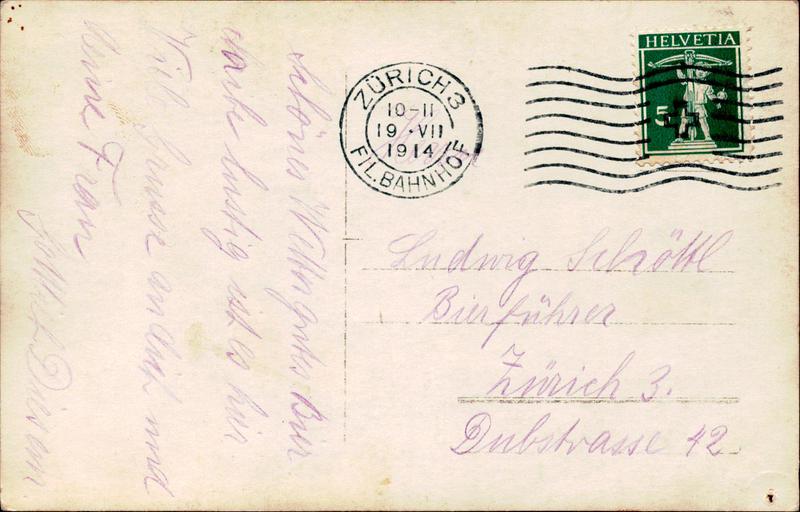 HELVETIA
5
ZÜRICH 3
10-11
19·VII
1914
FIL.BAHNHOF
Schönes Wetter gutes Bier
lustig ist es hier
Viele Grüsse an und
deine Frau
Ludwig Schöttl
Bierführer
Zürich 3.
Dubstrasse 42